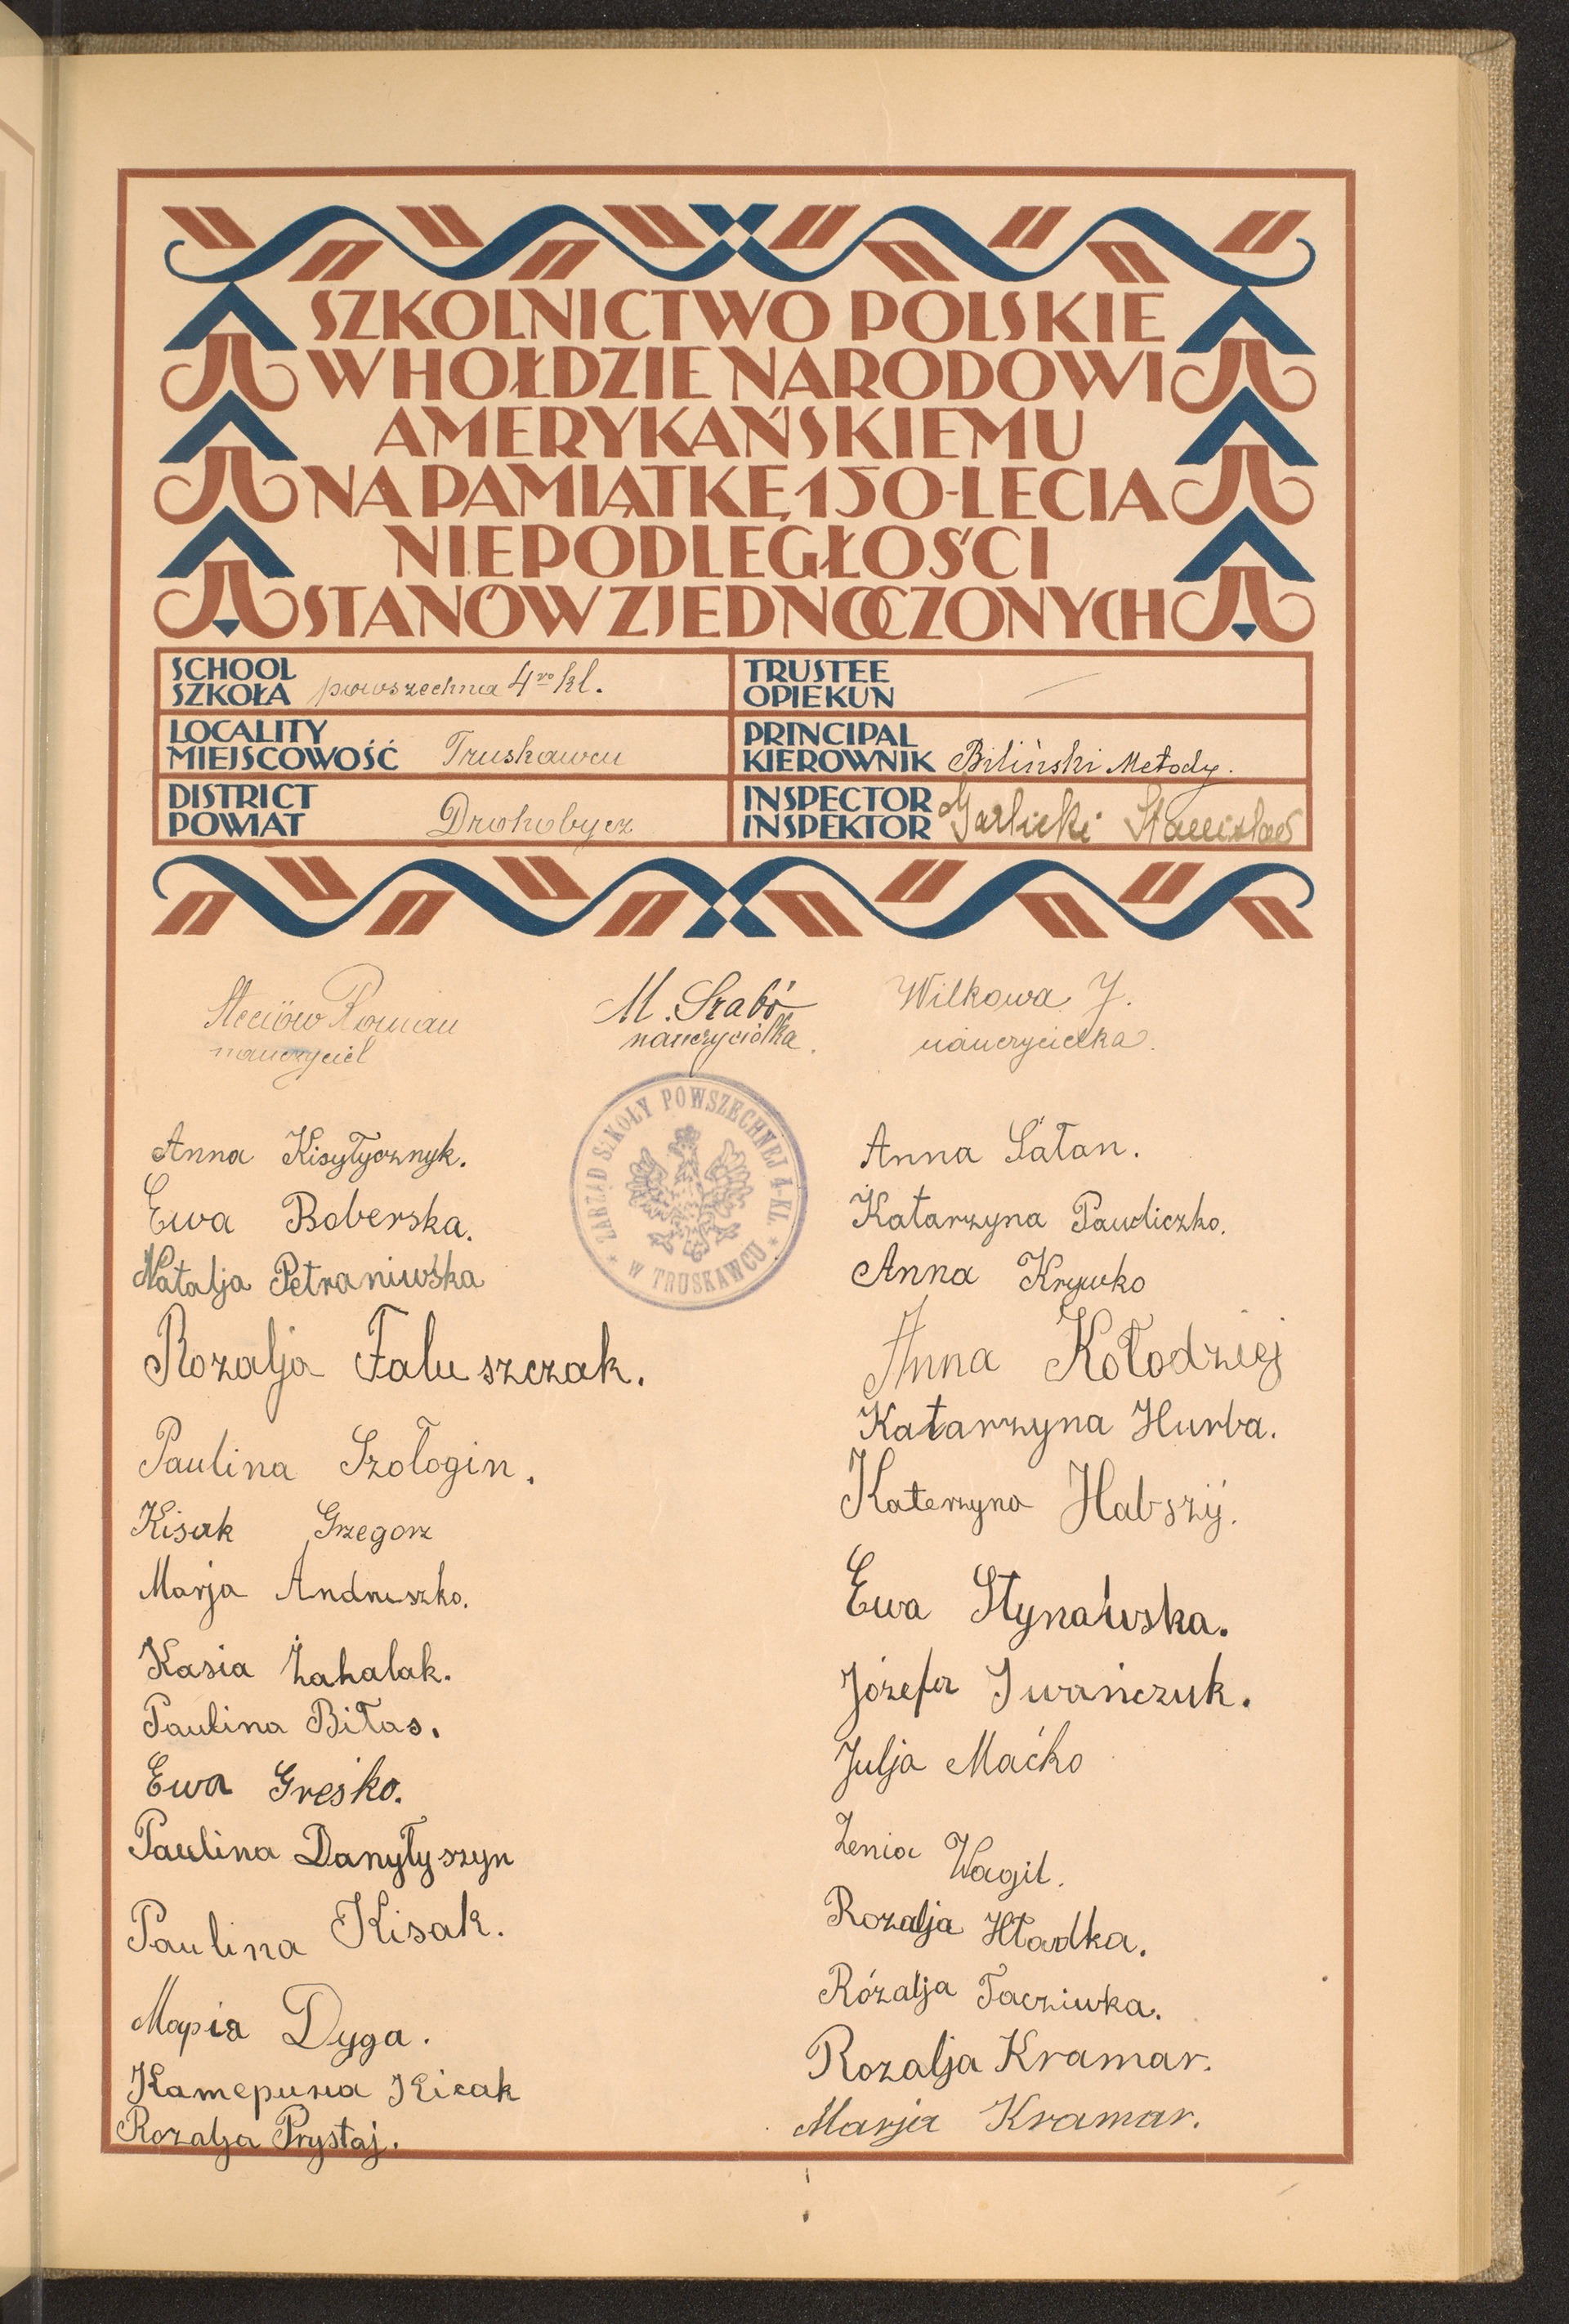 SZKOLNICTWO POLSKIE
W HOŁDZIE NARODOWI
AMERYKAŃSKIEMU
NA PAMIĄTKĘ 150-LECIA
NIEPODLEGŁOŚCI
STANÓW ZJEDNOCZONYCH
SCHOOL
SZKOŁA powszechna 4ro kl.
TRUSTEE
OPIEKUN
LOCALITY
MIEJSCOWOŚĆ Truskawcu
PRINCIPAL
KIEROWNIK Biliński Metody.
DISTRICT
POWIAT Drohobycz
INSPECTOR
INSPEKTOR Garlicki Stanisław
Steciów Roman
nauczyciel
M. Szabó
nauczycielka.
Wilkowa J.
nauczycielka.
ZARZĄD SZKOŁY POWSZECHNEJ 4-KL.
W TRUSKAWCU
Anna Kisyłycznyk.
Ewa Boberska.
Natalja Petraniwska
Rozalja Faluszczak.
Paulina Szołogin.
Kisak Grzegorz
Marja Andruszko.
Kasia Żahalak.
Paulina Biłas.
Ewa Greśko.
Paulina Danyłyszyn
Paulina Kisak.
Марія Дуга.
Катерина Кісак
Rozalja Prystaj.
Anna Sałan.
Katarzyna Pawliczko.
Anna Krywko
Anna Kołodziej
Katarzyna Hurba.
Katerzyna Habszij.
Ewa Stynawska.
Józefa Iwańczuk.
Julja Maćko
Zenia Wagil.
Rozalja Hładka.
Rózalja Tacziwka.
Rozalja Kramar.
Marja Kramar.